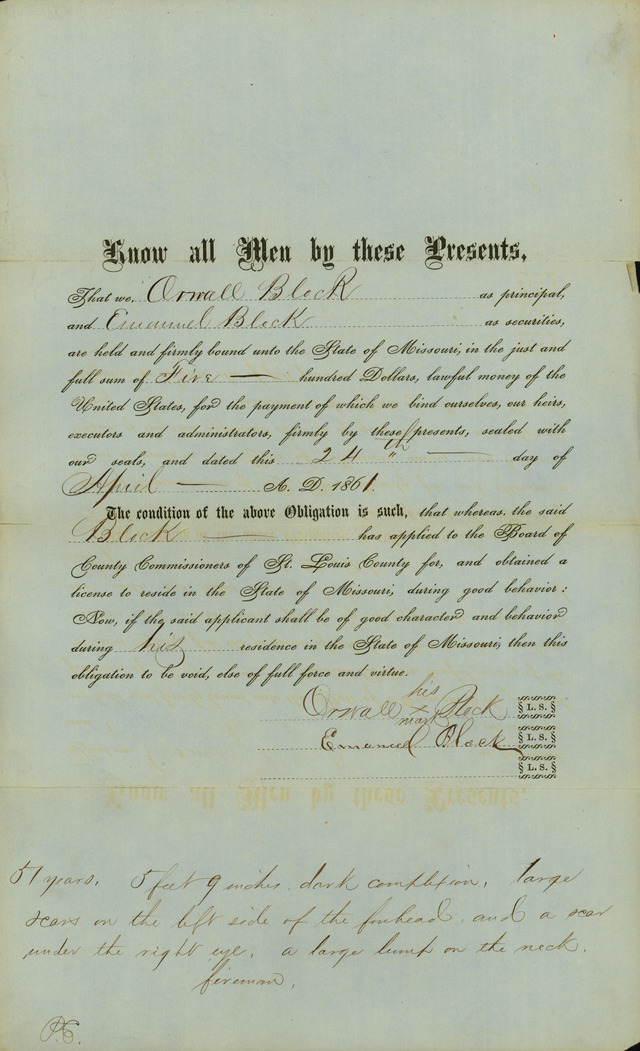 Know all Men by these Presents,
That we, Orwall Block as principal,
and Emanuel Block as securities,
are held and firmly bound unto the State of Missouri, in the just and
full sum of Five — hundred Dollars, lawful money of the
United States, for the payment of which we bind ourselves, our heirs,
executors and administrators, firmly by these presents, sealed with
our seals, and dated this 24th — day of
April — A. D. 1861.
The condition of the above Obligation is such, that whereas, the said
Block — has applied to the Board of
County Commissioners of St. Louis County for, and obtained a
license to reside in the State of Missouri, during good behavior:
Now, if the said applicant shall be of good character and behavior
during his residence in the State of Missouri, then this
obligation to be void, else of full force and virtue.
his
Orwall x Block L. S.
mark
Emanuel Block L. S.
L. S.
51 years, 5 feet 9 inches, dark complexion, large
scars on the left side of the forhead, and a scar
under the right eye, a large lump on the neck.
fireman.